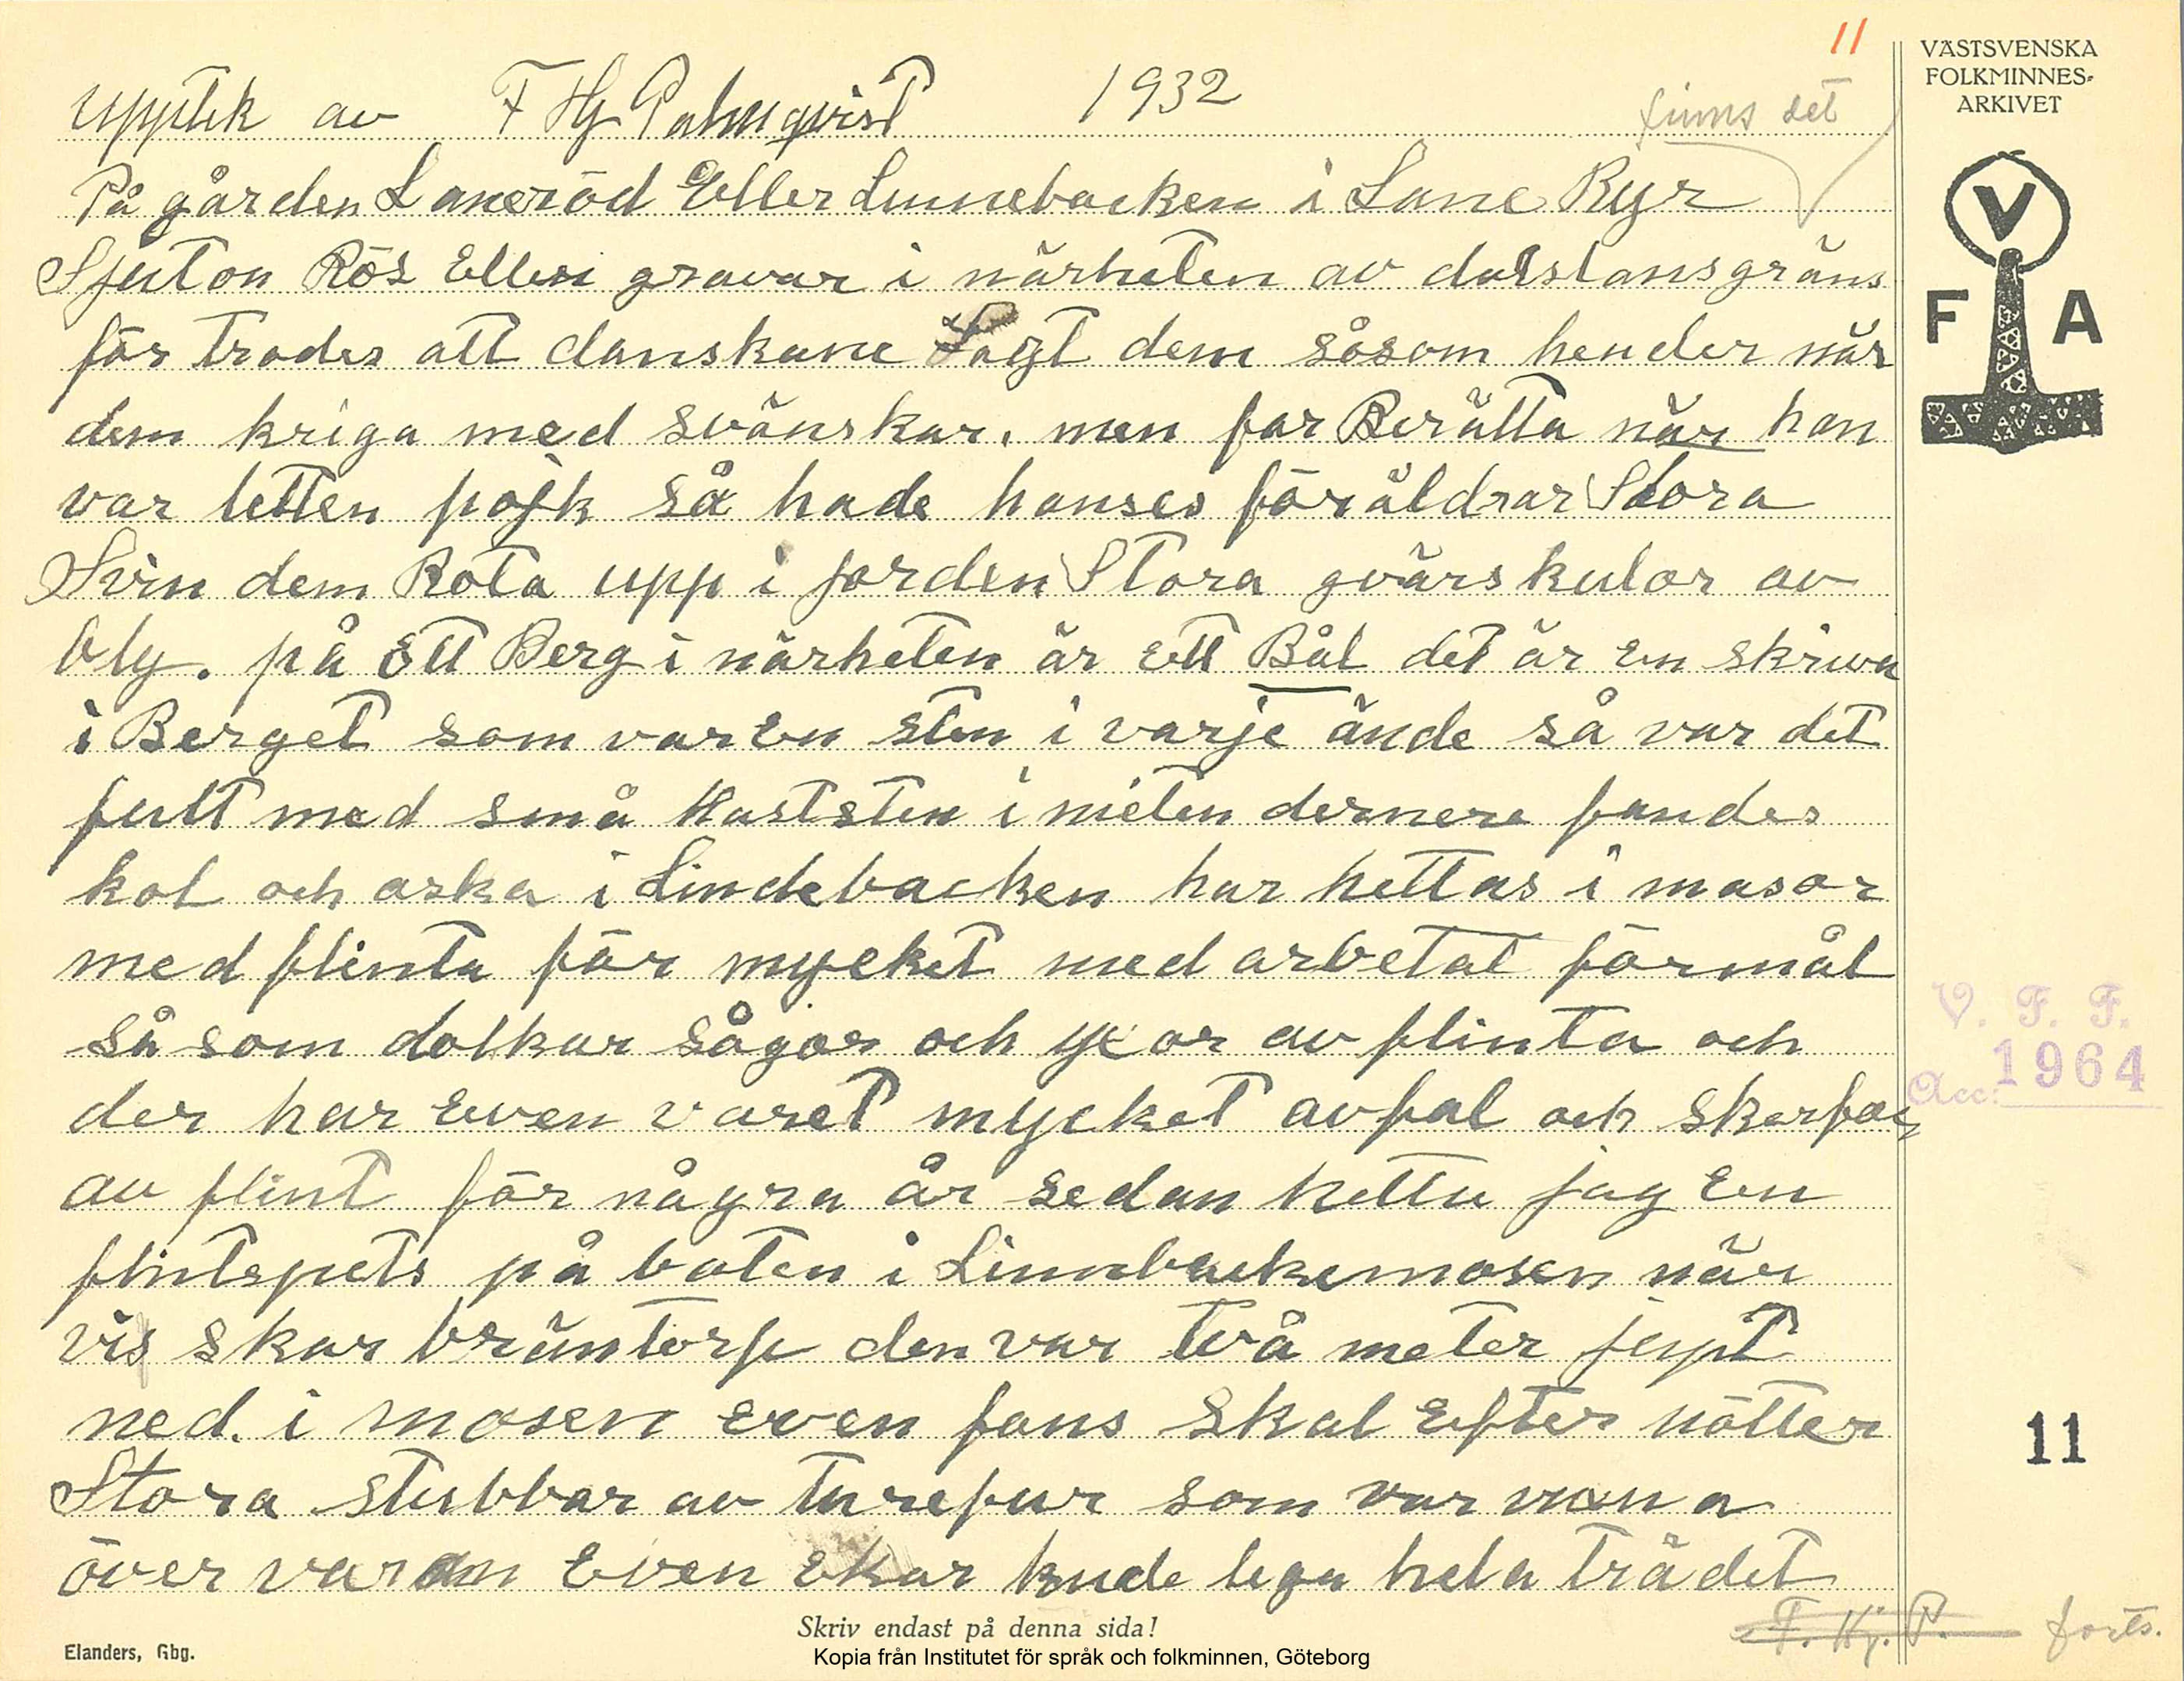 11
VÄSTSVENSKA
FOLKMINNES-
ARKIVET
V
F A
upptek av F Hj Palmqvist 1932
finns det
På gården Laneröd Eller Linnebacken i Lane Ryr
Sjuton Rös Eller gravar i närheten av dalslansgräns
för trodes att danskane Lagt dem såsom hender när
dem kriga med svänskar. men far Berätta när han
var letten pojk så hade hanses föräldrar Stora
Svin dem Rota upp i jorden Stora gvärskulor av
bly. på Ett Berg i närheten är Ett Bål det är En skriva
i Berget som var En sten i varje ände så var det
fult med små kaststen i miten dernere fandes
kol och aska i Lindebacken har hettas i masor
med flinta för mycket med arbetat förmål
så som dolkar sågor och yxor av flinta och
der har Even varet mycket avfal och skarfor
av flint för några år sedan hettu jag En
flintspets på boten i Linnbackemosen när
vis skar bräntorf den var två meter jupt
ned. i mosen even fans skal Efter nötter
Stora stubbar av turefur som var vuxna
över varan Even Ekar kunde lega hela trädet
V. F. F.
Acc: 1964
11
Skriv endast på denna sida!
F. Hj. P. forts.
Elanders, Gbg.
Kopia från Institutet för språk och folkminnen, Göteborg